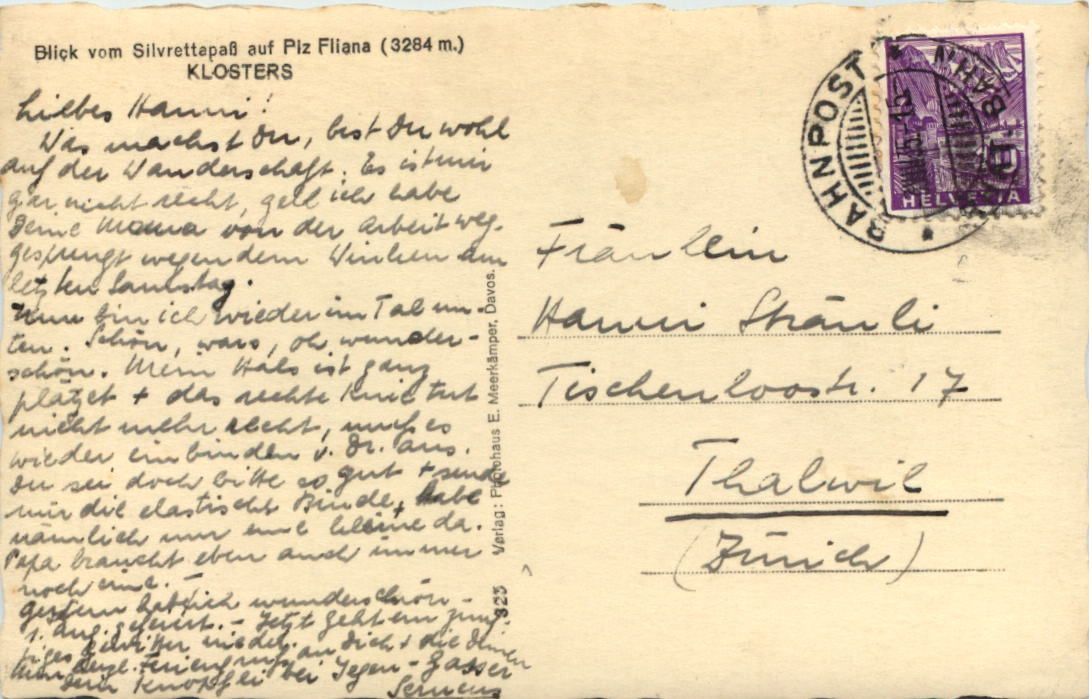 Blick vom Silvrettapaß auf Piz Fliana (3284 m.)
KLOSTERS
Liebes Hanni!
Was machst Du, bist Du wohl
auf der Wanderschaft. Es ist mir
gar nicht recht, gell ich habe
Deine Mama von der Arbeit weg-
gesprengt wegen dem Winken am
letzten Samstag.
Nun bin ich wieder im Tal un-
ten. Schön, wars, oh wunder-
schön. Mein Hals ist ganz
plätzet + das rechte Knie tut
nicht mehr recht, muss es
wieder einbinden v. Dr. aus.
Du sei doch bitte so gut + sende
mir die elastische Binde, habe
nämlich nur eine kleine da.
Papa braucht eben auch immer
noch eine. -
Gestern hat sich wunderschön -
1. Aug. gefeiert. - Jetzt geht ein
Gewitter nieder. an Dich + die Deinen
herzl. Feriengruss
Dein Knöpfli bei Jegen - Gasser
Serneus
Verlag: Photohaus E. Meerkämper, Davos.
323
BAHNPOST
HELVETIA
Fräulein
Hanni Sträuli
Tischenloostr. 17
Thalwil
(Zürich)